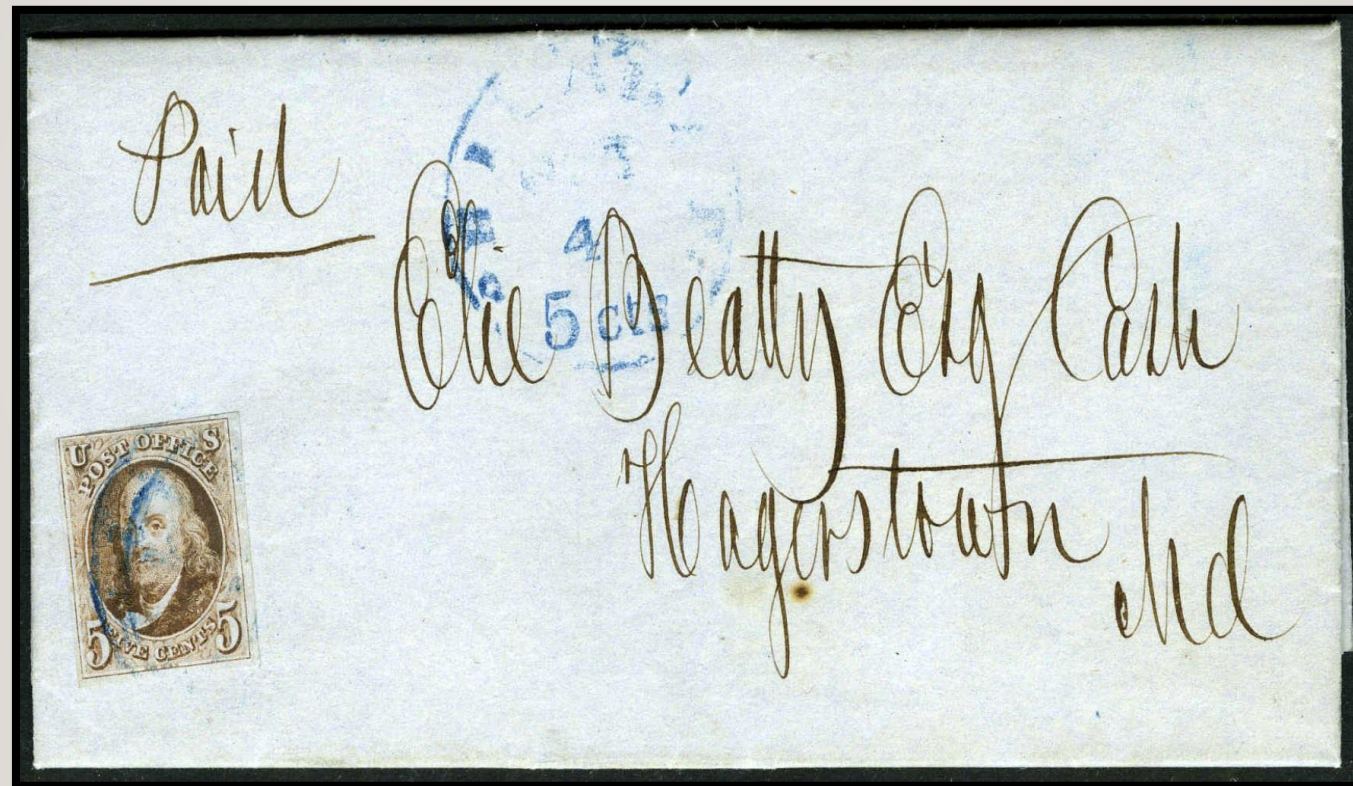 Paid
4
5 cts
Elie Beatty Esq Cash
Hagerstown
Md
U S
POST OFFICE
5 FIVE CENTS 5